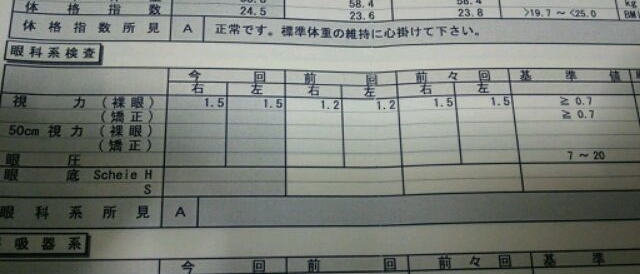 体格指数 24.5 23.6 23.8 >19.7～<25.0 BM
体格指数所見 A 正常です。標準体重の維持に心掛けて下さい。
眼科系検査
今回 前回 前々回 基準値
右 左 右 左 右 左
視力(裸眼) 1.5 1.5 1.2 1.2 1.5 1.5 ≧0.7
(矯正) ≧0.7
50cm視力(裸眼)
(矯正)
眼圧 7～20
眼底 Scheie H
S
眼科系所見 A
吸器系
今回 前回 前々回 基準